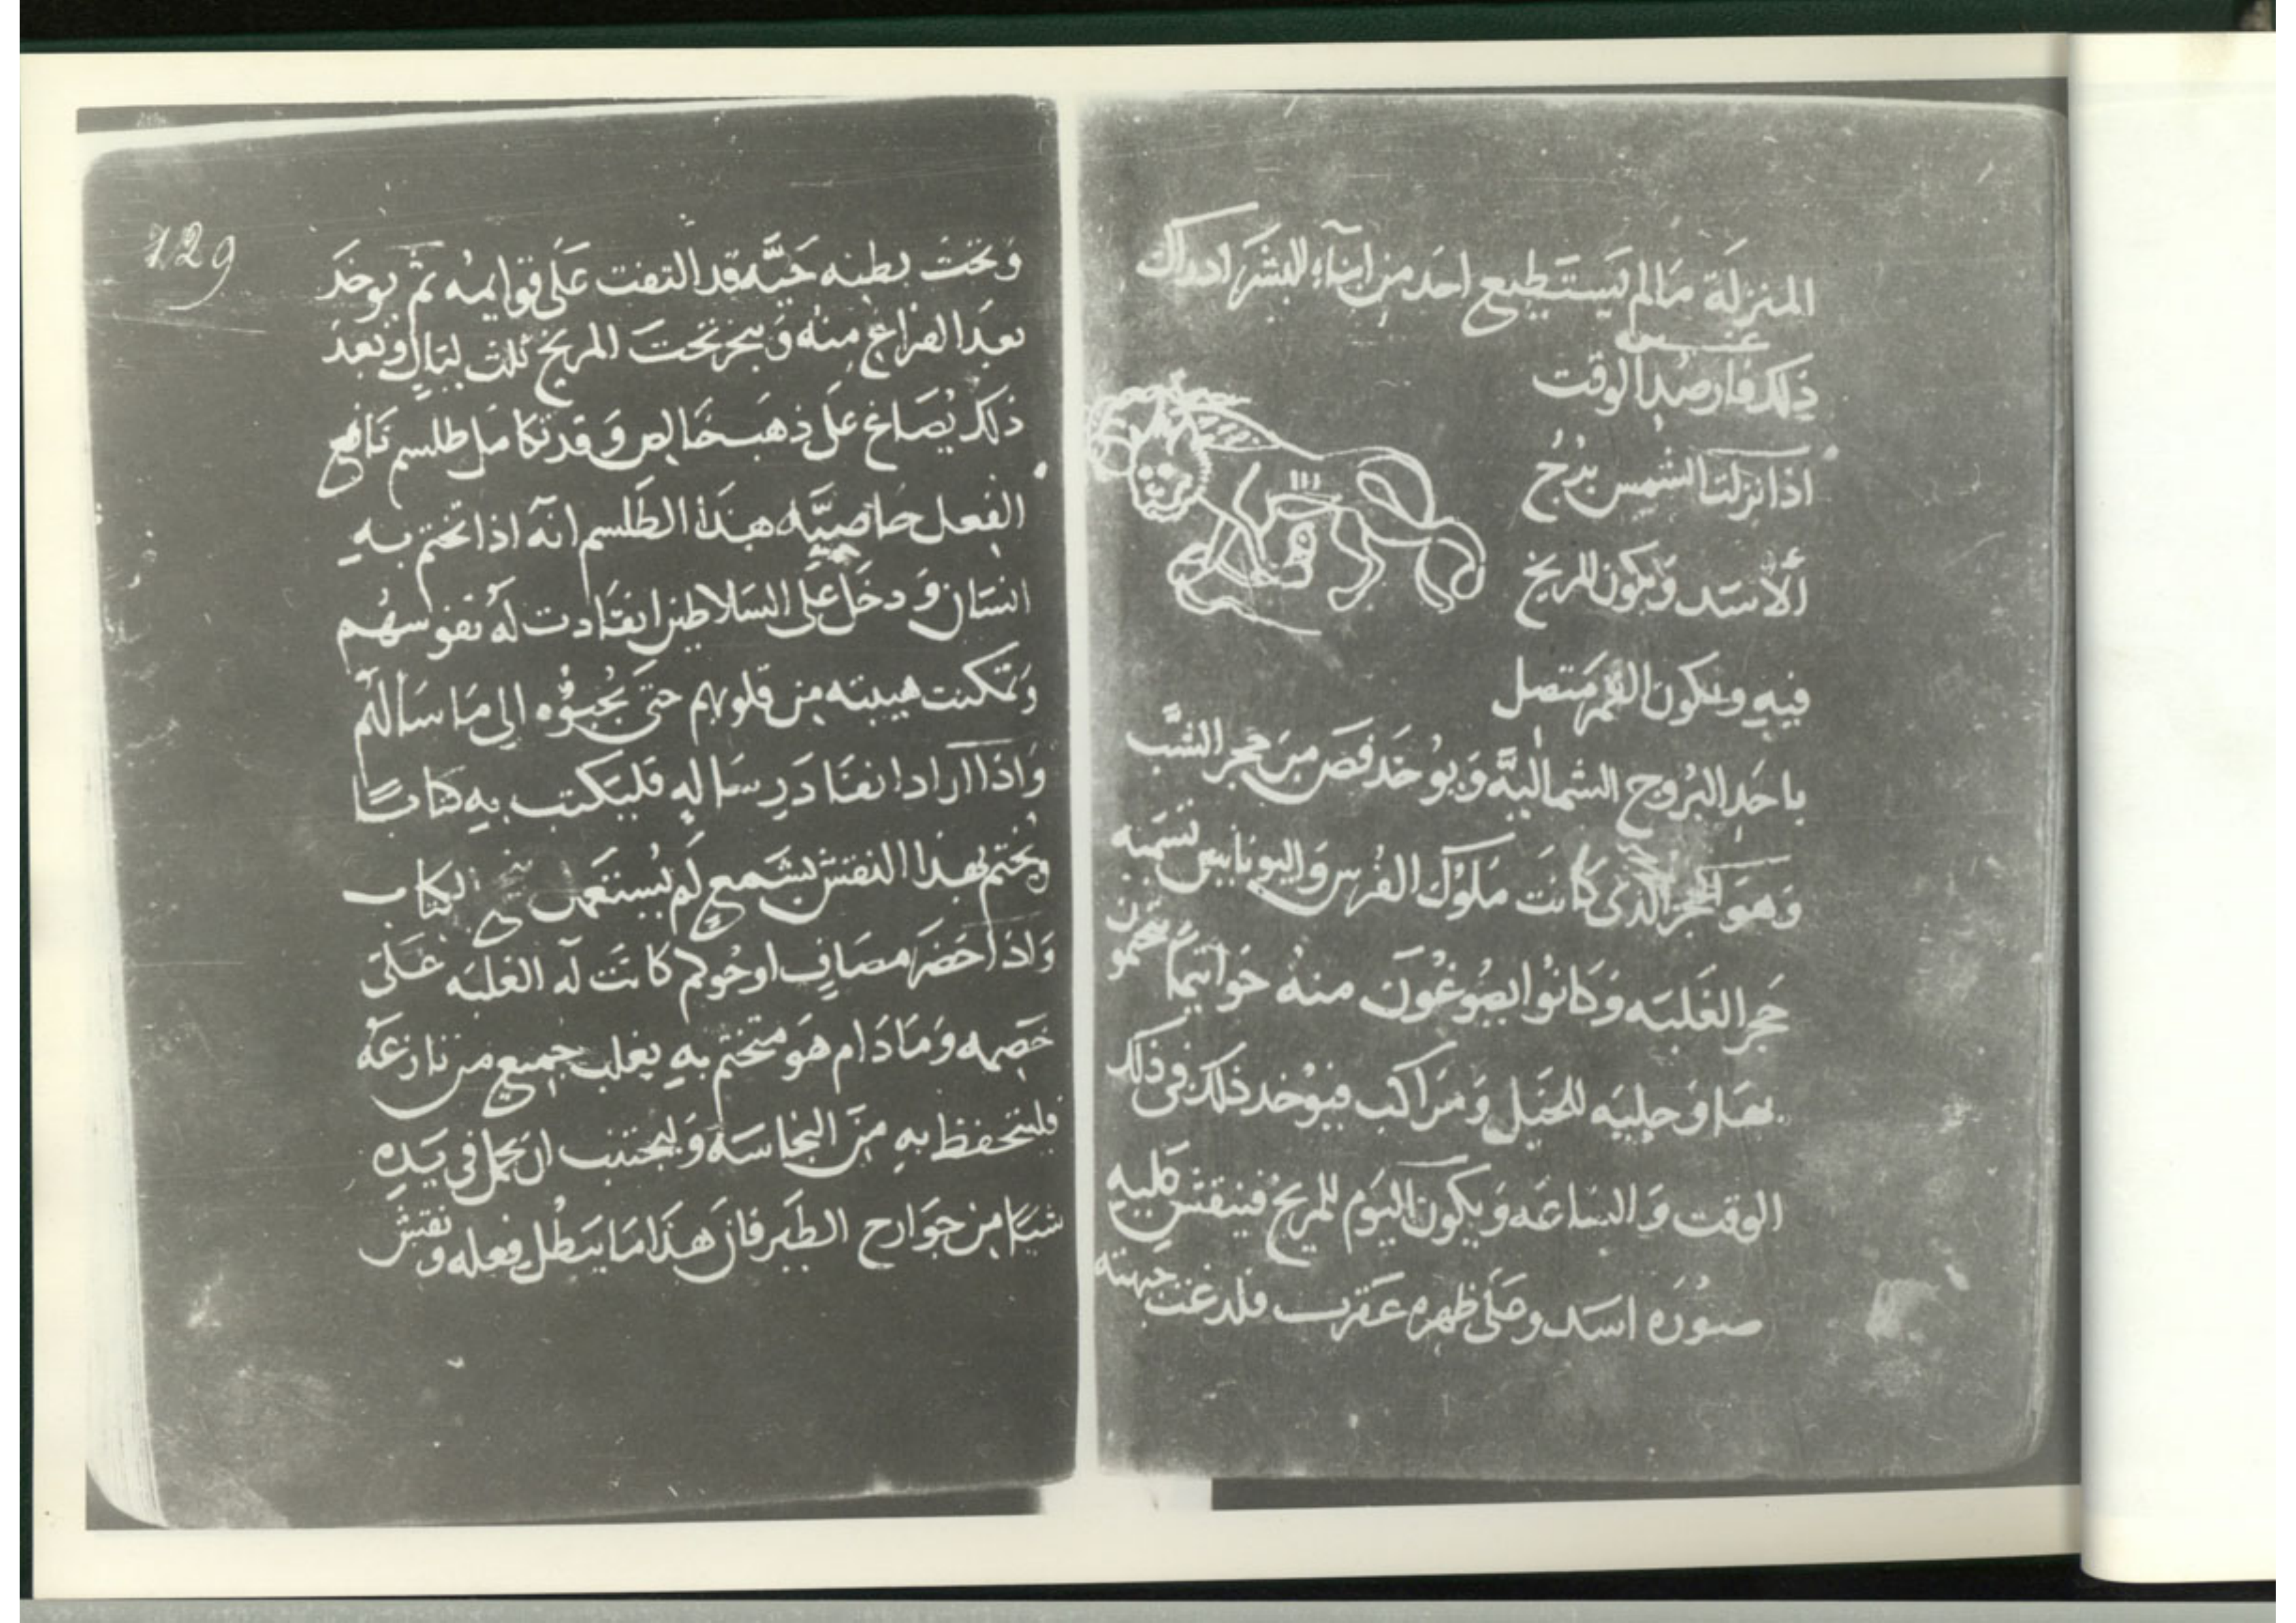 المنزلة مالم يستطيع احد من ابناء البشر ادراك
ذلك فارصد الوقت
اذا نزلت الشمس برج
الأسد ويكون المريخ
فيه ويكون القمر متصل
باحد البروج الشماليّة ويوخد فص من حجر الشب
وهو الحجر الذي كانت ملوك الفرس واليونانيين تسميه
حجر الغلبه وكانوا يصوغون منه خواتيم يتختمون
بها وحليه للخيل ومراكب فيوخد ذلك في ذلك
الوقت والساعه ويكون اليوم للمريخ فينقش عليه
صوره اسد وعلى ظهره عقرب قد لدغت جبهته
129
وتحت بطنه حيّه قد التفت على قوايمه ثم يوخد
بعد الفراغ منه ويبخر تحت المريخ ثلث ليال وبعد
ذلك يصاغ على ذهب خالص وقد تكامل طلسم نافع
الفعل خاصيّه هذا الطلسم انه اذا تختم به
انسان ودخل على السلاطين انقادت له نفوسهم
وتمكنت هيبته من قلوبهم حتى يجيبوه الى ما سالهم
واذا اراد انفاد رساله فليكتب به كتابًا
ويختم بهذا النقش بشمع لم يستعمل الكتاب
واذا حضر مصاف او حوكم كانت له الغلبه على
خصمه وما دام هو متختم به يغلب جميع من نازعه
فليتحفظ به من النجاسه وليجتنب ان يحمل في يده
شيًا من جوارح الطير فان هذا ما يبطل فعله ونقش